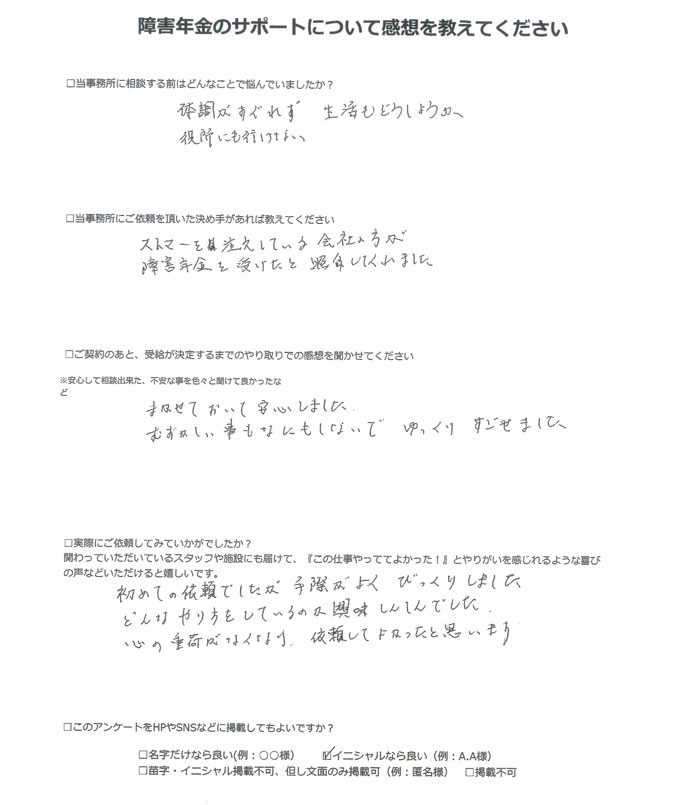 障害年金のサポートについて感想を教えてください
□当事務所に相談する前はどんなことで悩んでいましたか？
体調がすぐれず 生活もどうしようか、
役所にも行けない、
□当事務所にご依頼を頂いた決め手があれば教えてください
ストマーを注文している 会社の方が
障害年金を受けたと 紹介してくれました
□ご契約のあと、受給が決定するまでのやり取りでの感想を聞かせてください
※安心して相談出来た、不安な事を色々と聞けて良かったな
ど
まかせて おいて 安心しました.
むずかしい事もなにもしないで ゆっくり すごせました、
□実際にご依頼してみていかがでしたか？
関わっていただいているスタッフや施設にも届けて、『この仕事やっててよかった！』とやりがいを感じれるような喜び
の声などいただけると嬉しいです。
初めての依頼でしたが 手際がよく びっくりしました
どんなやり方をしているのか興味しんしんでした.
心の重荷がなくなり. 依頼してよかったと思います
□このアンケートをHPやSNSなどに掲載してもよいですか？
□名字だけなら良い(例：○○様） ☑イニシャルなら良い（例：A.A様）
□苗字・イニシャル掲載不可、但し文面のみ掲載可（例：匿名様） □掲載不可